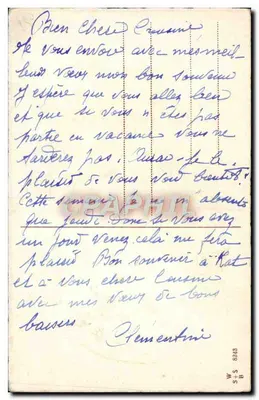 Bien chere Cousine
Je vous envoie avec mes meil-
leurs vœux mon bon souvenir
J'espère que vous allez bien
et que si vous n'êtes pas
partie en vacance vous ne
tarderez pas. Aurai-je le
plaisir de vous voir bientôt?
Cette semaine je m'absente
que jeudi donc si vous avez
un jour venez celà me fera
plaisir Bon souvenir à Kat
et à vous chere Cousine
avec mes vœux de bons
baisers
Clementine
W
S+S 6243
B